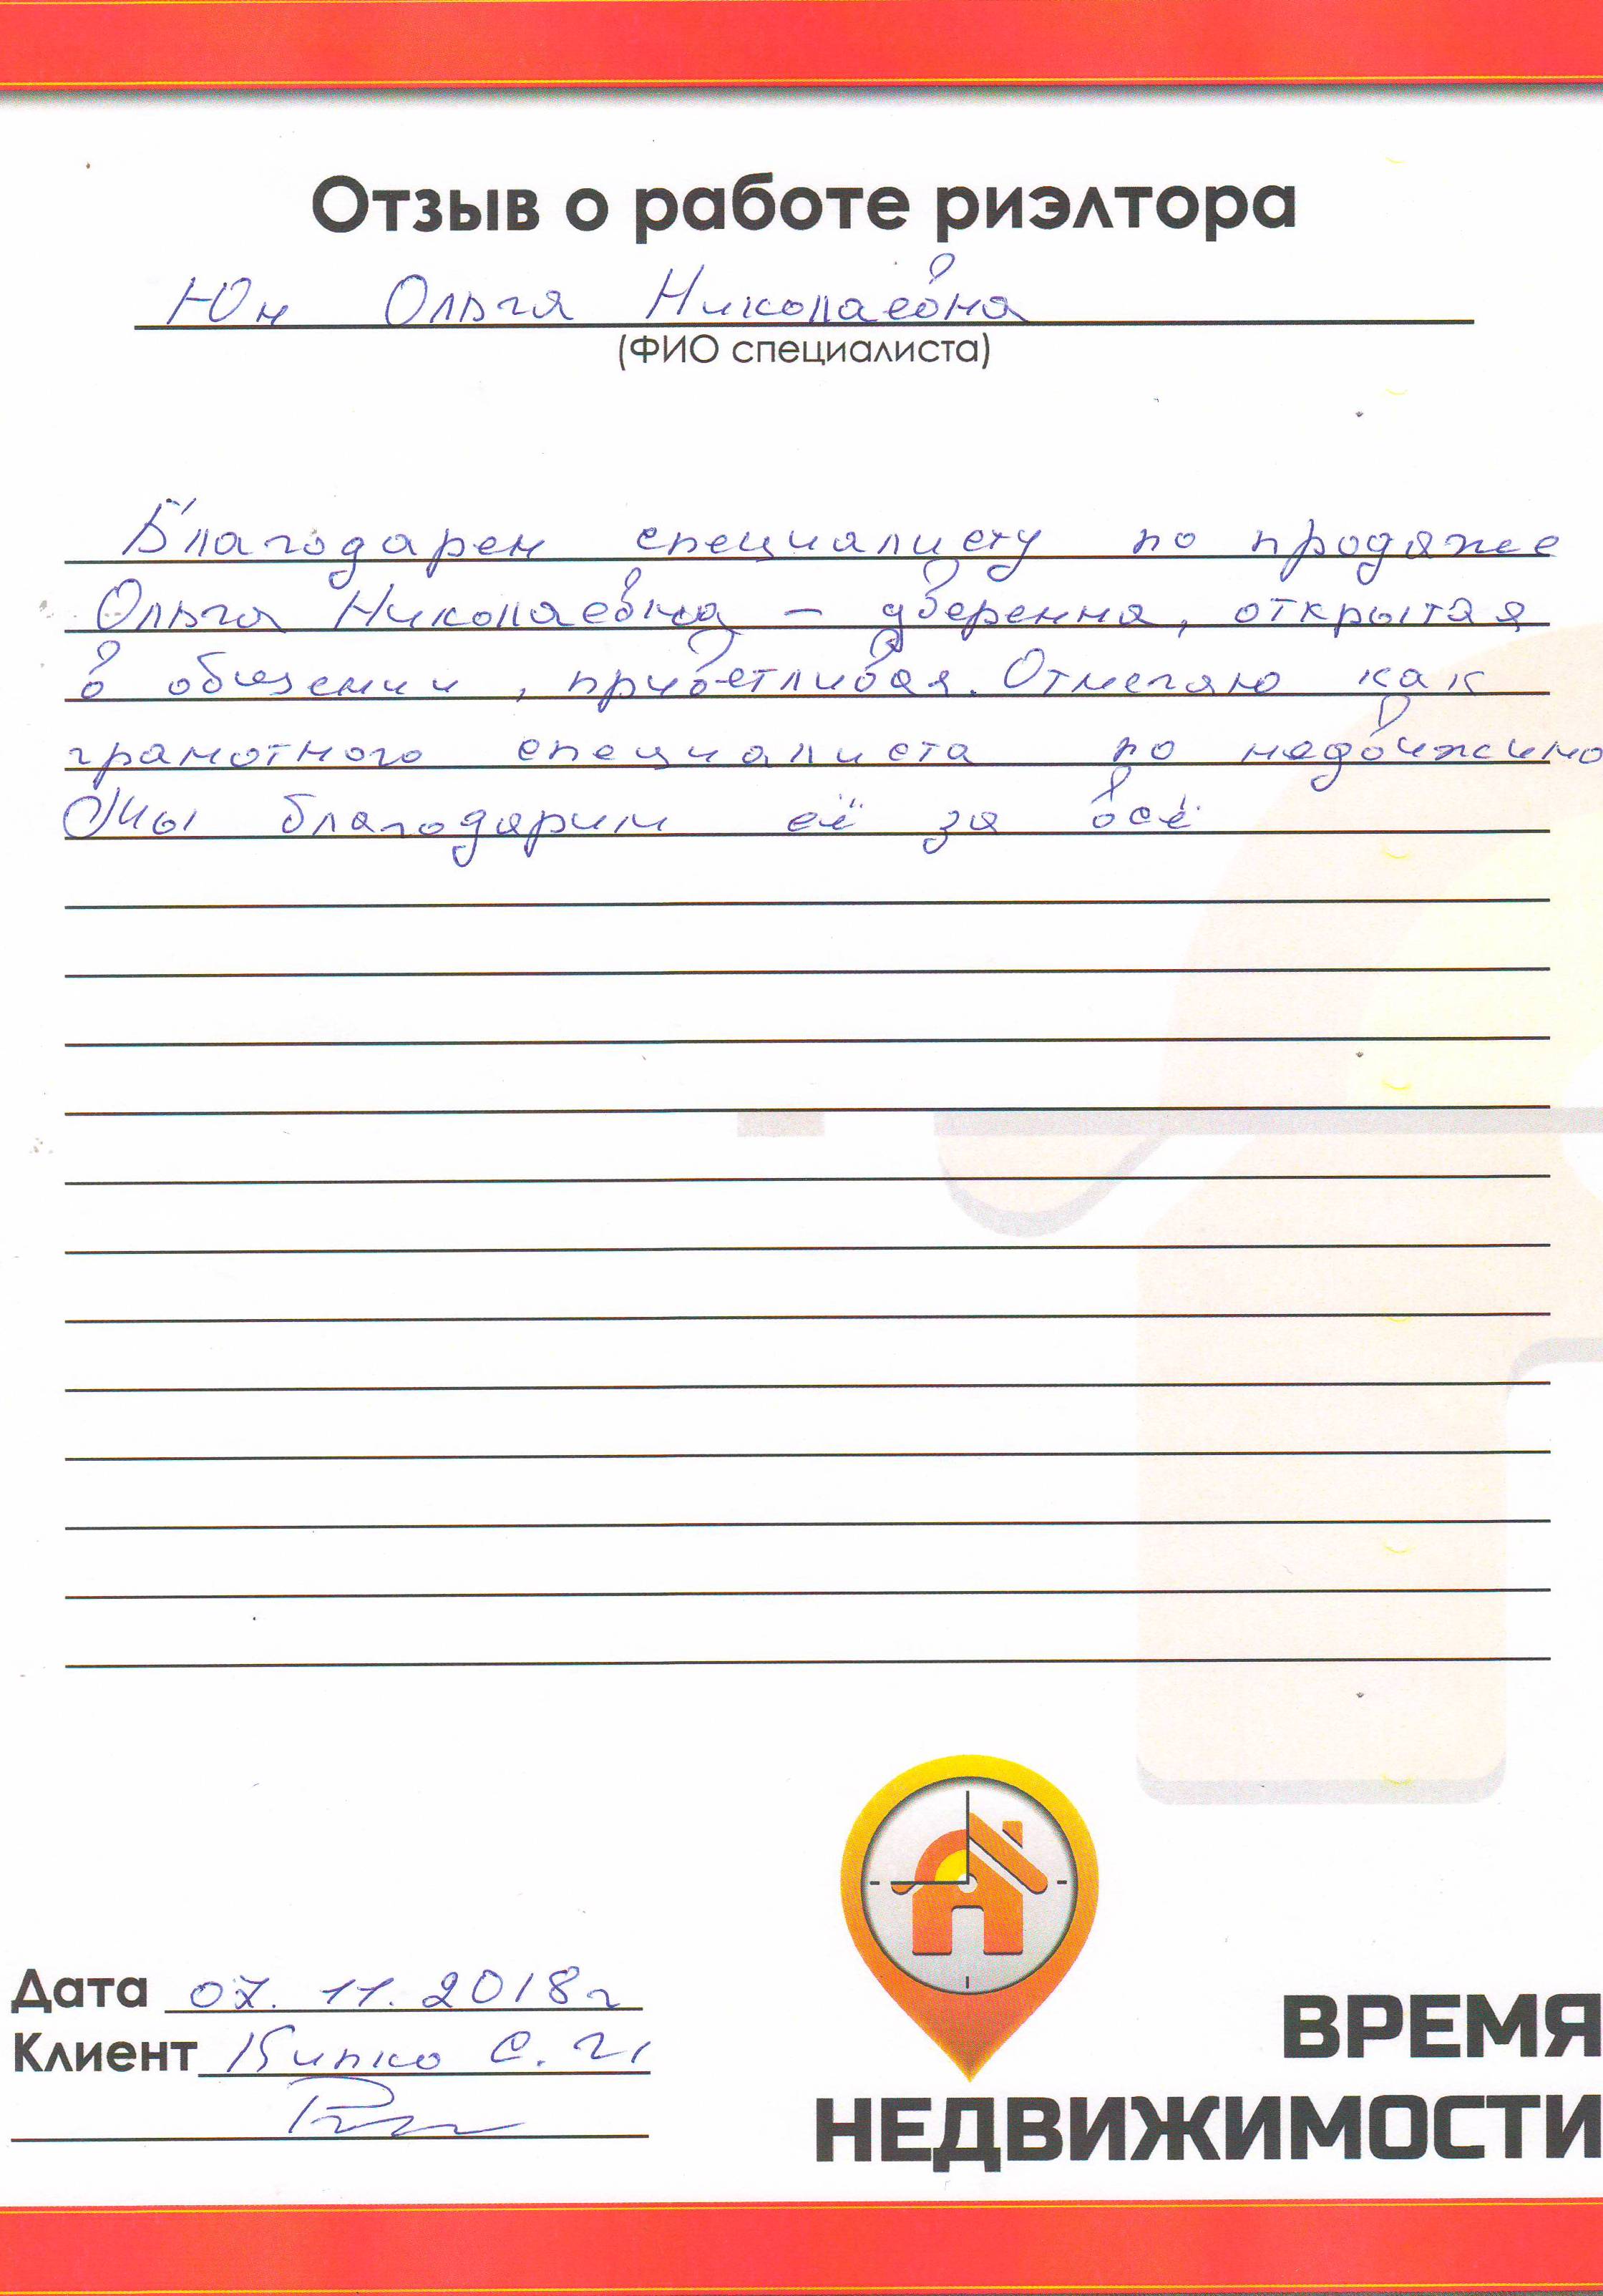 Отзыв о работе риэлтора
Юн Ольга Николаевна
(ФИО специалиста)
Благодарен специалисту по продаже
Ольга Николаевна – уверенна, открытая
в общении, приветливая. Отмечаю как
грамотного специалиста по недвижимо
Мы благодарим её за всё
Дата 07.11.2018г
Клиент Кипко С.
ВРЕМЯ
НЕДВИЖИМОСТИ